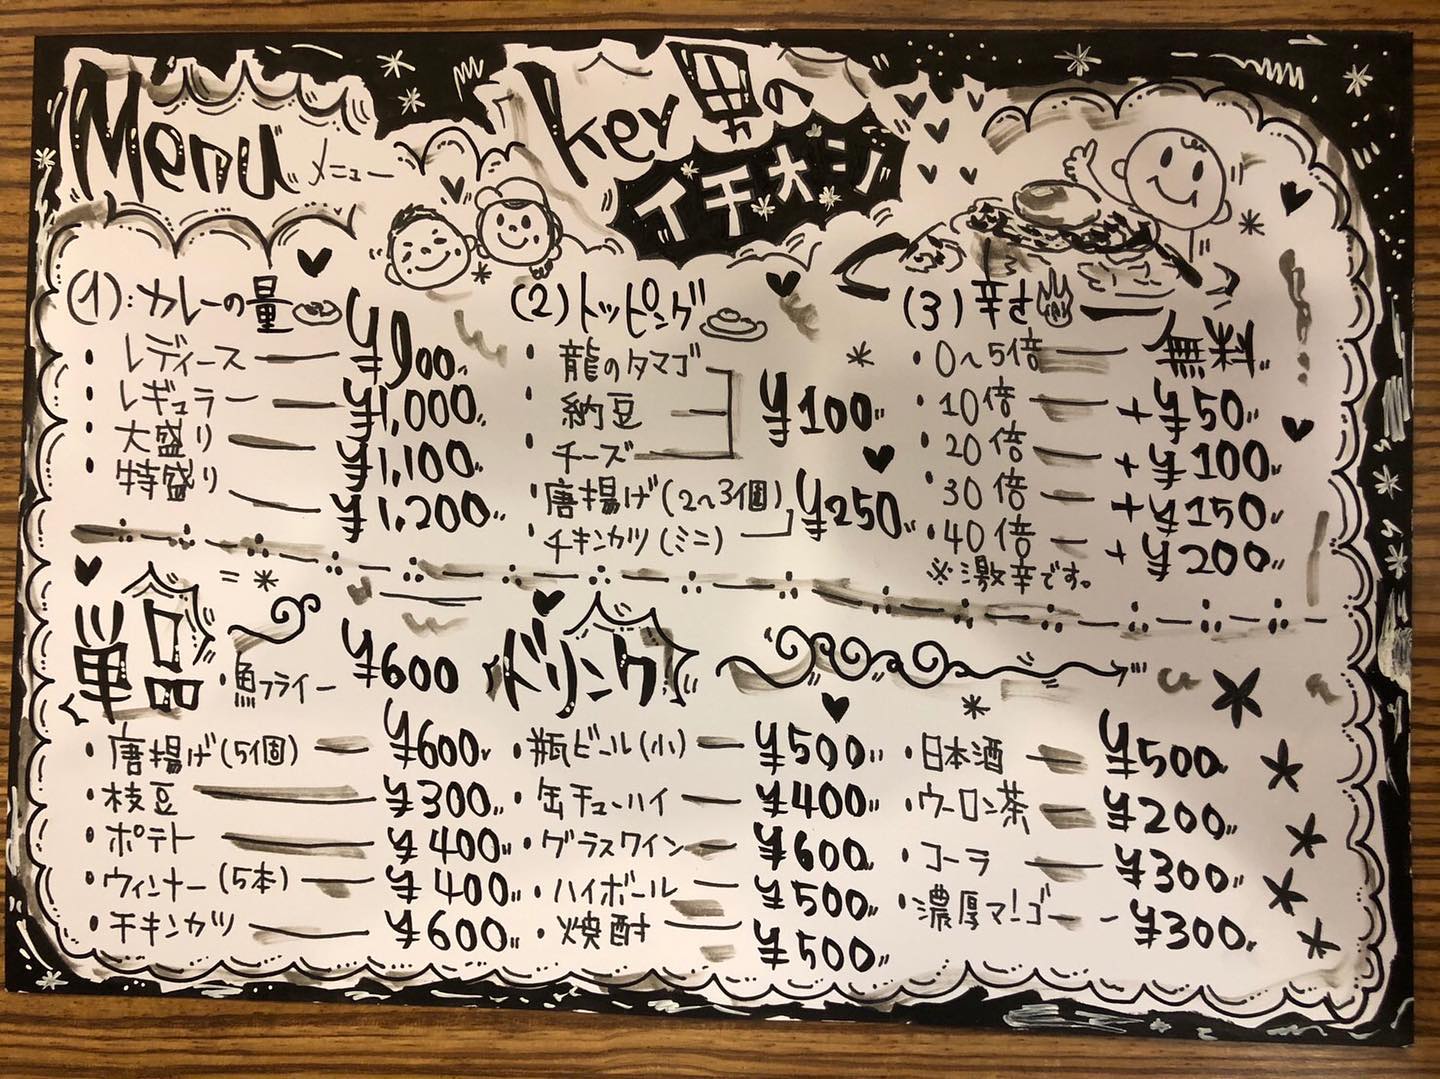 Menu メニュー
key男の
イチオシ
(1):カレーの量
・レディース ― ¥900
・レギュラー ― ¥1,000
・大盛り ― ¥1,100
・特盛り ― ¥1,200
(2)トッピング
・龍のタマゴ
・納豆
・チーズ
¥100
・唐揚げ(2〜3個)
・チキンカツ(ミニ)
¥250
(3)辛さ
・0〜5倍 ― 無料
・10倍 ― +¥50
・20倍 ― +¥100
・30倍 ― +¥150
・40倍 ― +¥200
※激辛です。
単品
・魚フライ ― ¥600
・唐揚げ(5個) ― ¥600
・枝豆 ― ¥300
・ポテト ― ¥400
・ウィンナー(5本) ― ¥400
・チキンカツ ― ¥600
ドリンク
・瓶ビール(小) ― ¥500
・缶チューハイ ― ¥400
・グラスワイン ― ¥600
・ハイボール ― ¥500
・焼酎 ― ¥500
・日本酒 ― ¥500
・ウーロン茶 ― ¥200
・コーラ ― ¥300
・濃厚マンゴー ― ¥300